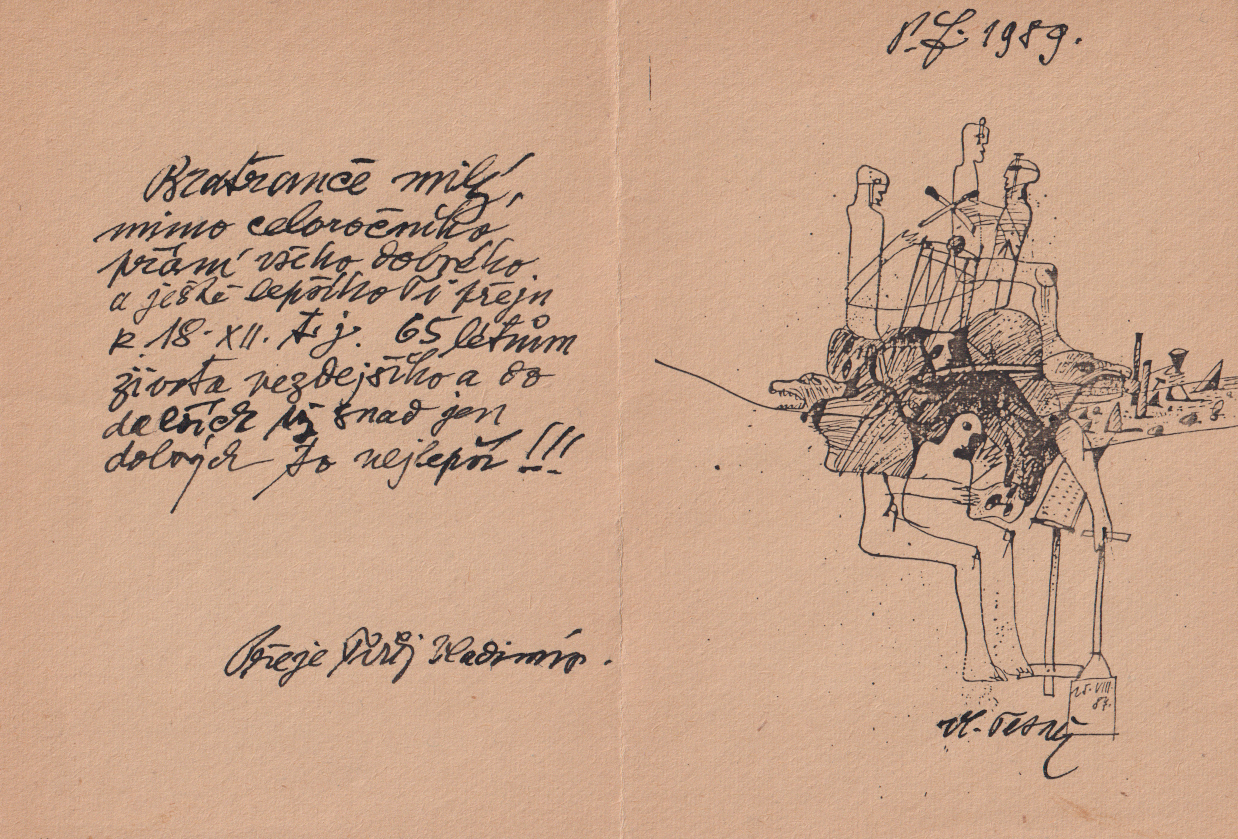 Bratranče milý,
mimo celoročního
přání všeho dobrého
a ještě lepšího Ti přeju
k 18. XII. t.j. 65 létům
života vezdejšího a do
dalších už snad jen
dobrých to nejlepší !!!
Přeje Tvůj Vladimír.
P.f. 1989.
25. VIII
87.
Vl. Tesař